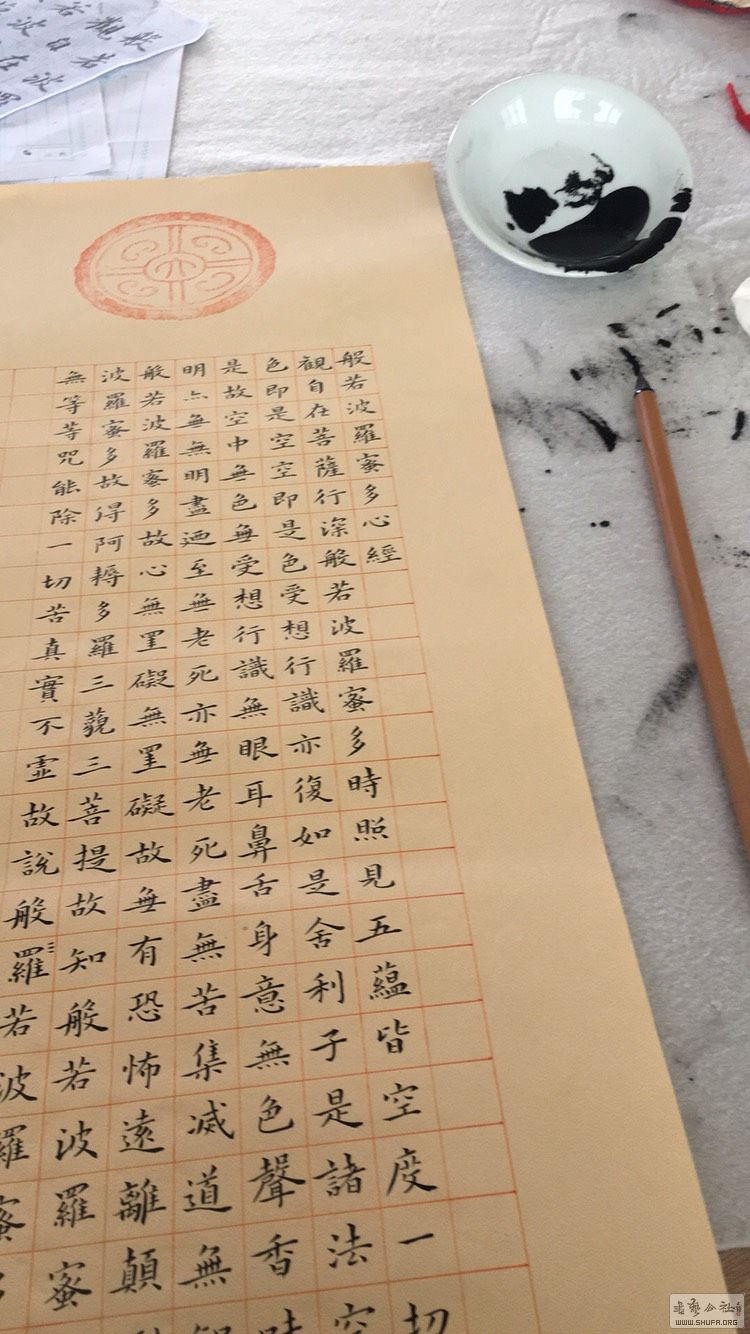 般若波羅
觀自在
般若波羅蜜多心經
觀自在菩薩行深般若波羅蜜多時照見五蘊皆空度一切
色即是空空即是色受想行識亦復如是舍利子是諸法空
是故空中無色無受想行識無眼耳鼻舌身意無色聲香味
明亦無無明盡迺至無老死亦無老死盡無苦集滅道無智
般若波羅蜜多故心無罣礙無罣礙故無有恐怖遠離顛
波羅蜜多故得阿耨多羅三藐三菩提故知般若波羅蜜
無等等咒能除一切苦真實不虛故說般羅若波羅蜜多
书艺公社
WWW.SHUFA.ORG